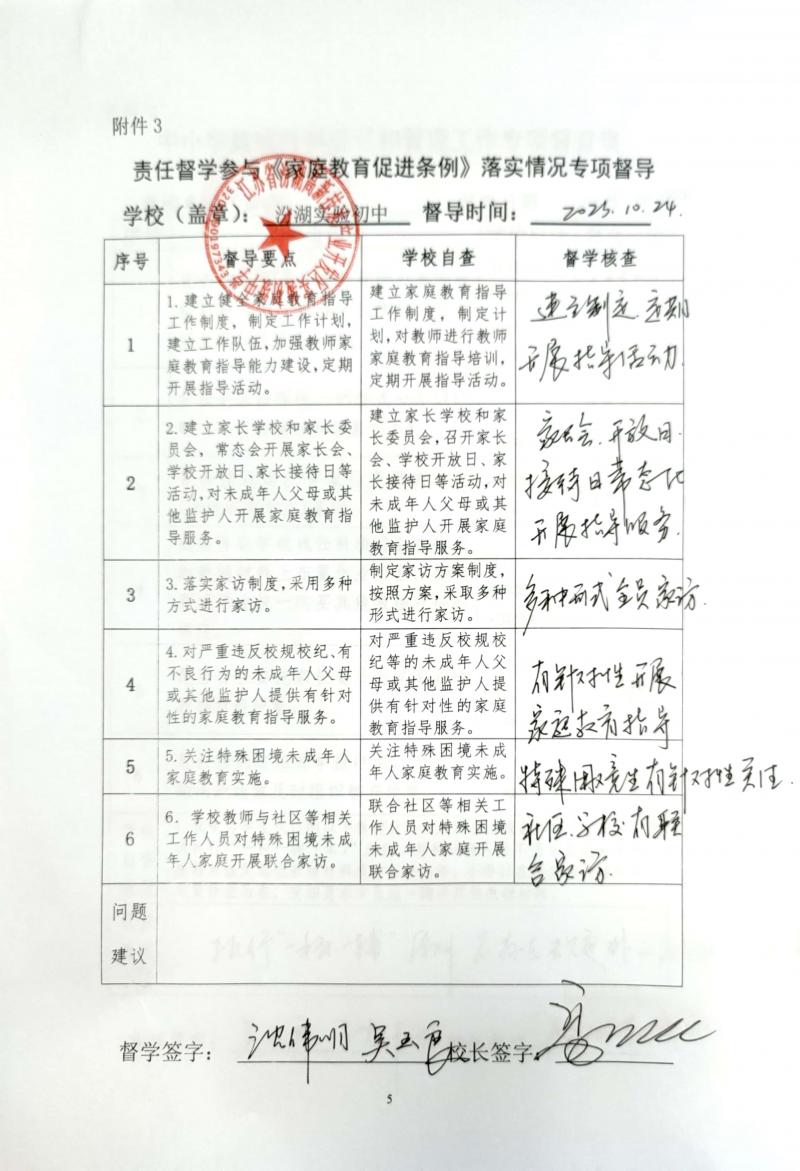 附件 3
责任督学参与《家庭教育促进条例》落实情况专项督导
学校（盖章）： 汾湖实验初中 督导时间： 2025.10.24.
序号 督导要点 学校自查 督学核查
1
1.建立健全家庭教育指导
工作制度，制定工作计划，
建立工作队伍，加强教师家
庭教育指导能力建设，定期
开展指导活动。
建立家庭教育指导
工作制度，制定计
划，对教师进行教师
家庭教育指导培训，
定期开展指导活动。
建立制定，定期
开展指导活动.
2
2.建立家长学校和家长委
员会，常态会开展家长会、
学校开放日、家长接待日等
活动，对未成年人父母或其
他监护人开展家庭教育指
导服务。
建立家长学校和家
长委员会，召开家长
会、学校开放日、家
长接待日等活动，对
未成年人父母或其
他监护人开展家庭
教育指导服务。
家长会、开放日.
接待日常态化
开展指导服务.
3
3.落实家访制度，采用多种
方式进行家访。
制定家访方案制度，
按照方案，采取多种
形式进行家访。
多种形式全员家访.
4
4.对严重违反校规校纪、有
不良行为的未成年人父母
或其他监护人提供有针对
性的家庭教育指导服务。
对严重违反校规校
纪等的未成年人父
母或其他监护人提
供有针对性的家庭
教育指导服务。
有针对性开展
家庭教育指导
5
5.关注特殊困境未成年人
家庭教育实施。
关注特殊困境未成
年人家庭教育实施。
特殊困境生有针对性关注.
6
6. 学校教师与社区等相关
工作人员对特殊困境未成
年人家庭开展联合家访。
联合社区等相关工
作人员对特殊困境
未成年人家庭开展
联合家访。
社区、学校有联
合家访.
问题
建议
督学签字： 沈伟明 吴玉良 校长签字：
5